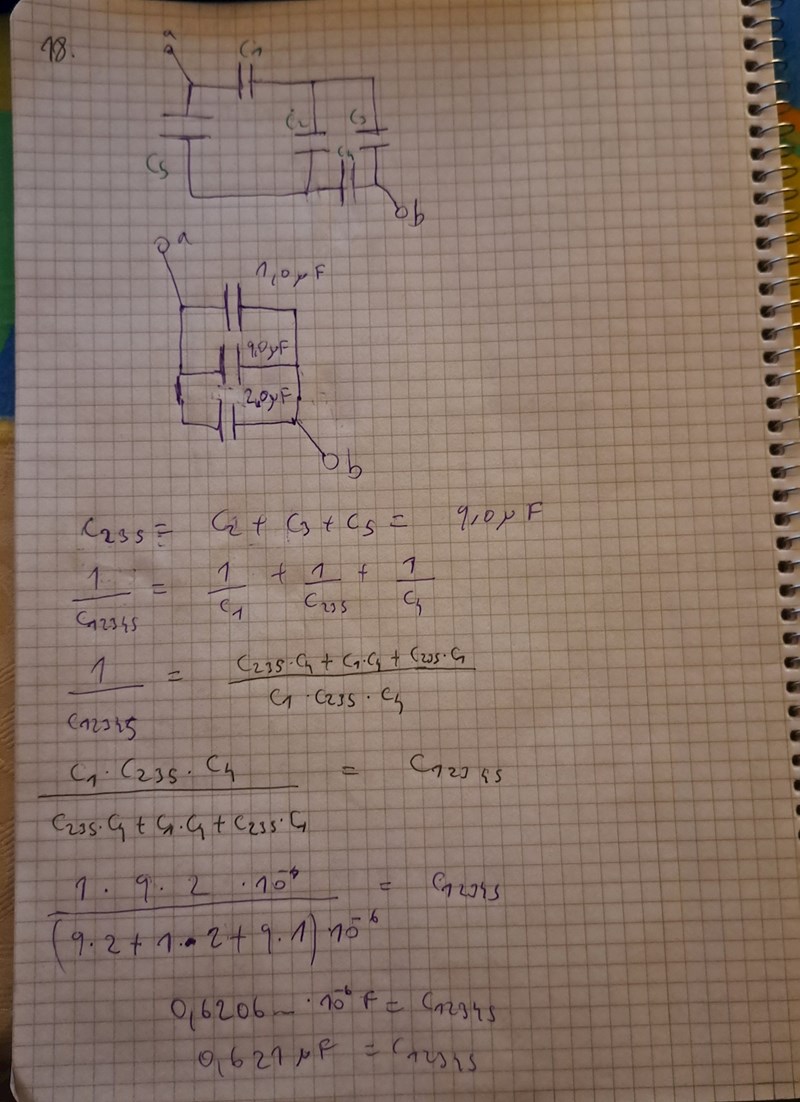 18.
a
C1
C2
C3
C4
C5
b
a
1,0 μF
9,0 μF
2,0 μF
b
C235 = C2 + C3 + C5 = 9,0 μF
1/C12345 = 1/C1 + 1/C235 + 1/C4
1/C12345 = (C235·C4 + C1·C4 + C235·C1)/(C1·C235·C4)
(C1·C235·C4)/(C235·C4 + C1·C4 + C235·C1) = C12345
(1·9·2·10^-6)/((9·2 + 1·2 + 9·1)10^-6) = C12345
0,6206... ·10^-6 F = C12345
0,621 μF = C12345